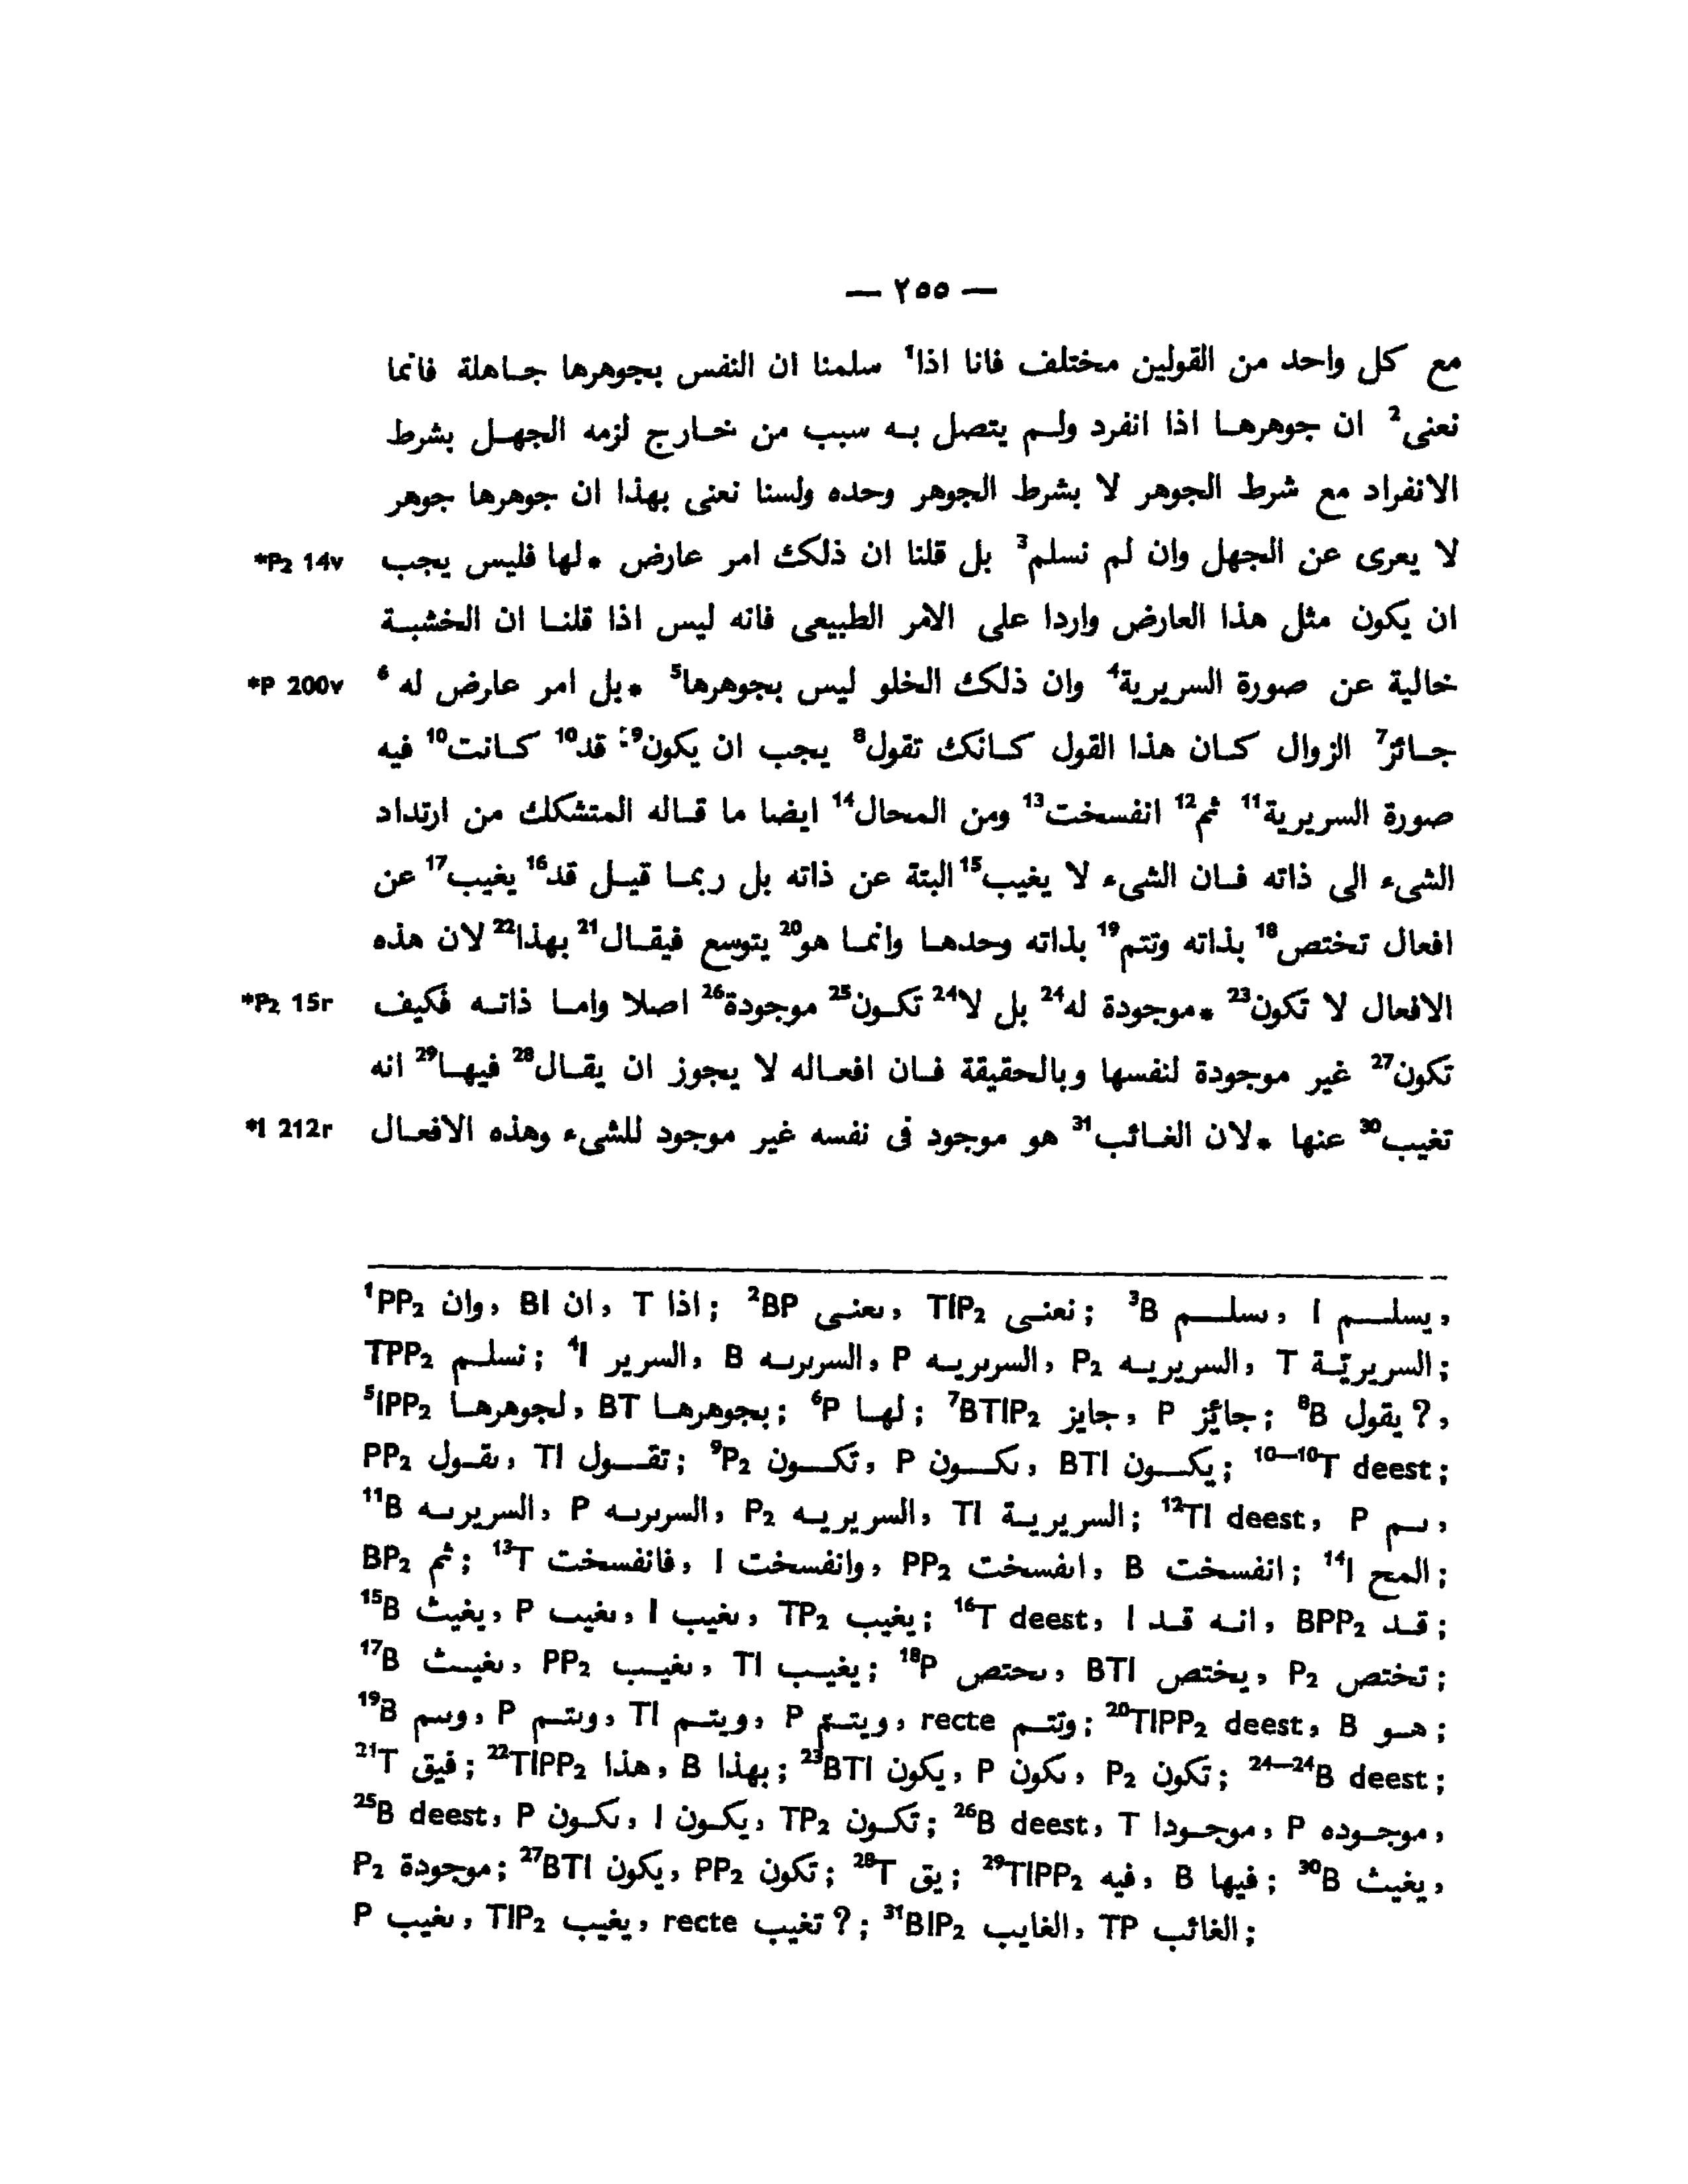 — ٢٥٥ —
مع كل واحد من القولين مختلف فانا اذا¹ سلمنا ان النفس بجوهرها جاهلة فانما
نعنى² ان جوهرها اذا انفرد ولم يتصل به سبب من خارج لزمه الجهل بشرط
الانفراد مع شرط الجوهر لا بشرط الجوهر وحده ولسنا نعنى بهذا ان جوهرها جوهر
لا يعرى عن الجهل وان لم نسلم³ بل قلنا ان ذلك امر عارض *لها فليس يجب *P₂ 14v
ان يكون مثل هذا العارض واردا على الامر الطبيعى فانه ليس اذا قلنا ان الخشبة
خالية عن صورة السريرية⁴ وان ذلك الخلو ليس بجوهرها⁵ *بل امر عارض له⁶ *P 200v
جائز⁷ الزوال كان هذا القول كانك تقول⁸ يجب ان يكون⁹: قد¹⁰ كانت¹⁰ فيه
صورة السريرية¹¹ ثم¹² انفسخت¹³ ومن المحال¹⁴ ايضا ما قاله المتشكك من ارتداد
الشىء الى ذاته فان الشىء لا يغيب¹⁵ البتة عن ذاته بل ربما قيل قد¹⁶ يغيب¹⁷ عن
افعال تختص¹⁸ بذاته وتتم¹⁹ بذاته وحدها وانما هو²⁰ يتوسع فيقال²¹ بهذا²² لان هذه
الافعال لا تكون²³ *موجودة له²⁴ بل لا²⁴ تكون²⁵ موجودة²⁶ اصلا واما ذاته فكيف *P₂ 15r
تكون²⁷ غير موجودة لنفسها وبالحقيقة فان افعاله لا يجوز ان يقال²⁸ فيها²⁹ انه
تغيب³⁰ عنها *لان الغائب³¹ هو موجود فى نفسه غير موجود للشىء وهذه الافعال *I 212r
¹PP₂ وان, BI ان, T اذا; ²BP ىعنى, TIP₂ نعنى; ³B ىسلم, I يسلم,
TPP₂ نسلم; ⁴I السرير, B السرىرىه, P السرىريه, P₂ السريريه, T السريريّة;
⁵IPP₂ لجوهرها, BT بجوهرها; ⁶P لها; ⁷BTIP₂ جايز, P جائز; ⁸B يقول?,
PP₂ ىقول, TI تقول; ⁹P₂ تكون, P ىكون, BTI يكون; ¹⁰⁻¹⁰T deest;
¹¹B السريرىه, P السرىرىه, P₂ السريريه, TI السريرية; ¹²TI deest, P ىم,
BP₂ ثم; ¹³T فانفسخت, I وانفسخت, PP₂ اىفسخت, B انفسخت; ¹⁴I المح;
¹⁵B يغيث, P ىغيب, I ىغيب, TP₂ يغيب; ¹⁶T deest, I انه قد, BPP₂ قد;
¹⁷B ىغيث, PP₂ ىغيب, TI يغيب; ¹⁸P ىحتص, BTI يختص, P₂ تختص;
¹⁹B وىىم, P وىتم, TI ويتم, P ويتم, recte وتتم; ²⁰TIPP₂ deest, B هو;
²¹T فيق; ²²TIPP₂ هذا, B بهذا; ²³BTI يكون, P ىكون, P₂ تكون; ²⁴⁻²⁴B deest;
²⁵B deest, P ىكون, I يكون, TP₂ تكون; ²⁶B deest, T موجودا, P موجوده,
P₂ موجودة; ²⁷BTI يكون, PP₂ تكون; ²⁸T يق; ²⁹TIPP₂ فيه, B فيها; ³⁰B يغيث,
P ىغيب, TIP₂ يغيب, recte تغيب?; ³¹BIP₂ الغايب, TP الغائب;